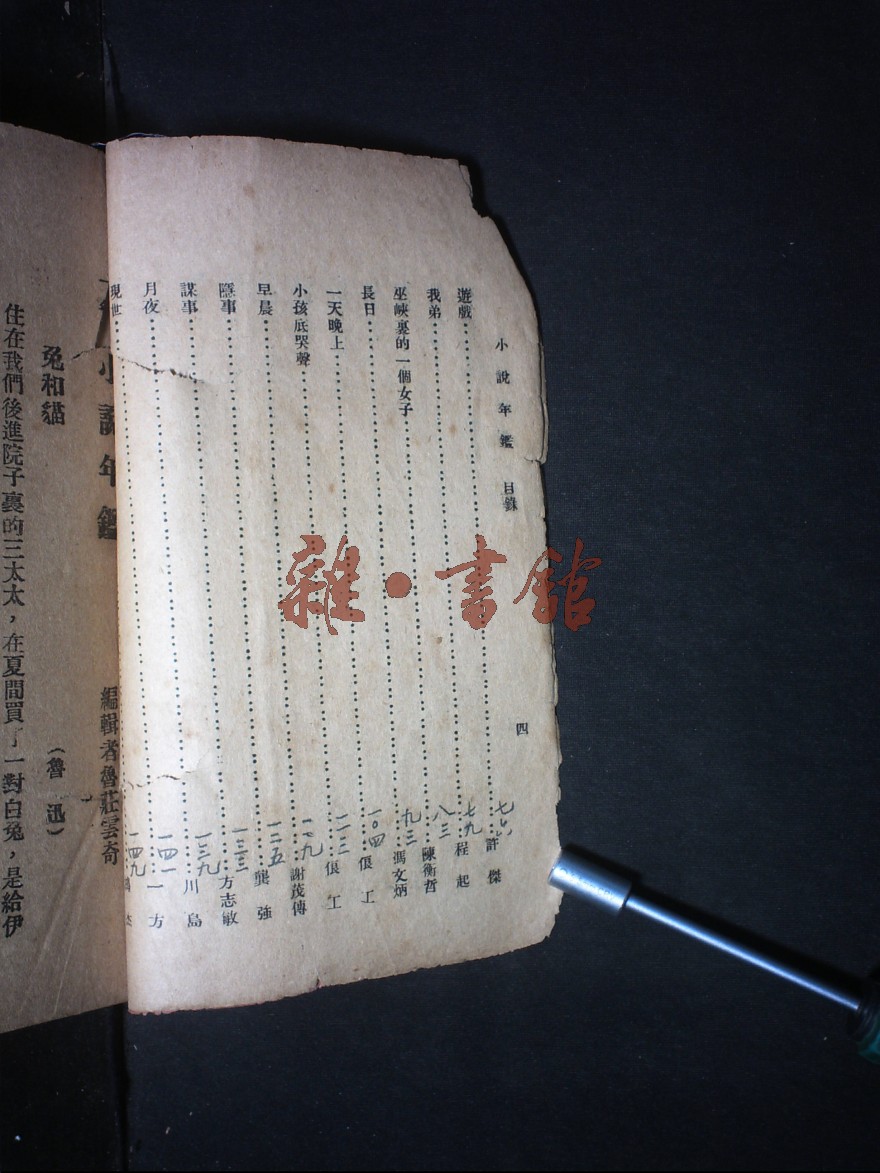 小說年鑑 目錄 四
遊戲……許傑
我弟……七九 程起
巫峽裏的一個女子……八三 陳衡哲
長日……九三 馮文炳
一天晚上……一〇四 俍工
小孩底哭聲……一一三 俍工
早晨……一一九 謝茂傅
隱事……一二五 龔強
謀事……一三三 方志敏
月夜……一三九 川島
現世……一四一 一方
一四九
小說年鑑
編輯者魯莊雲奇
兔和貓 (魯迅)
住在我們後進院子裏的三太太，在夏間買了一對白兔，是給伊
雜·書館